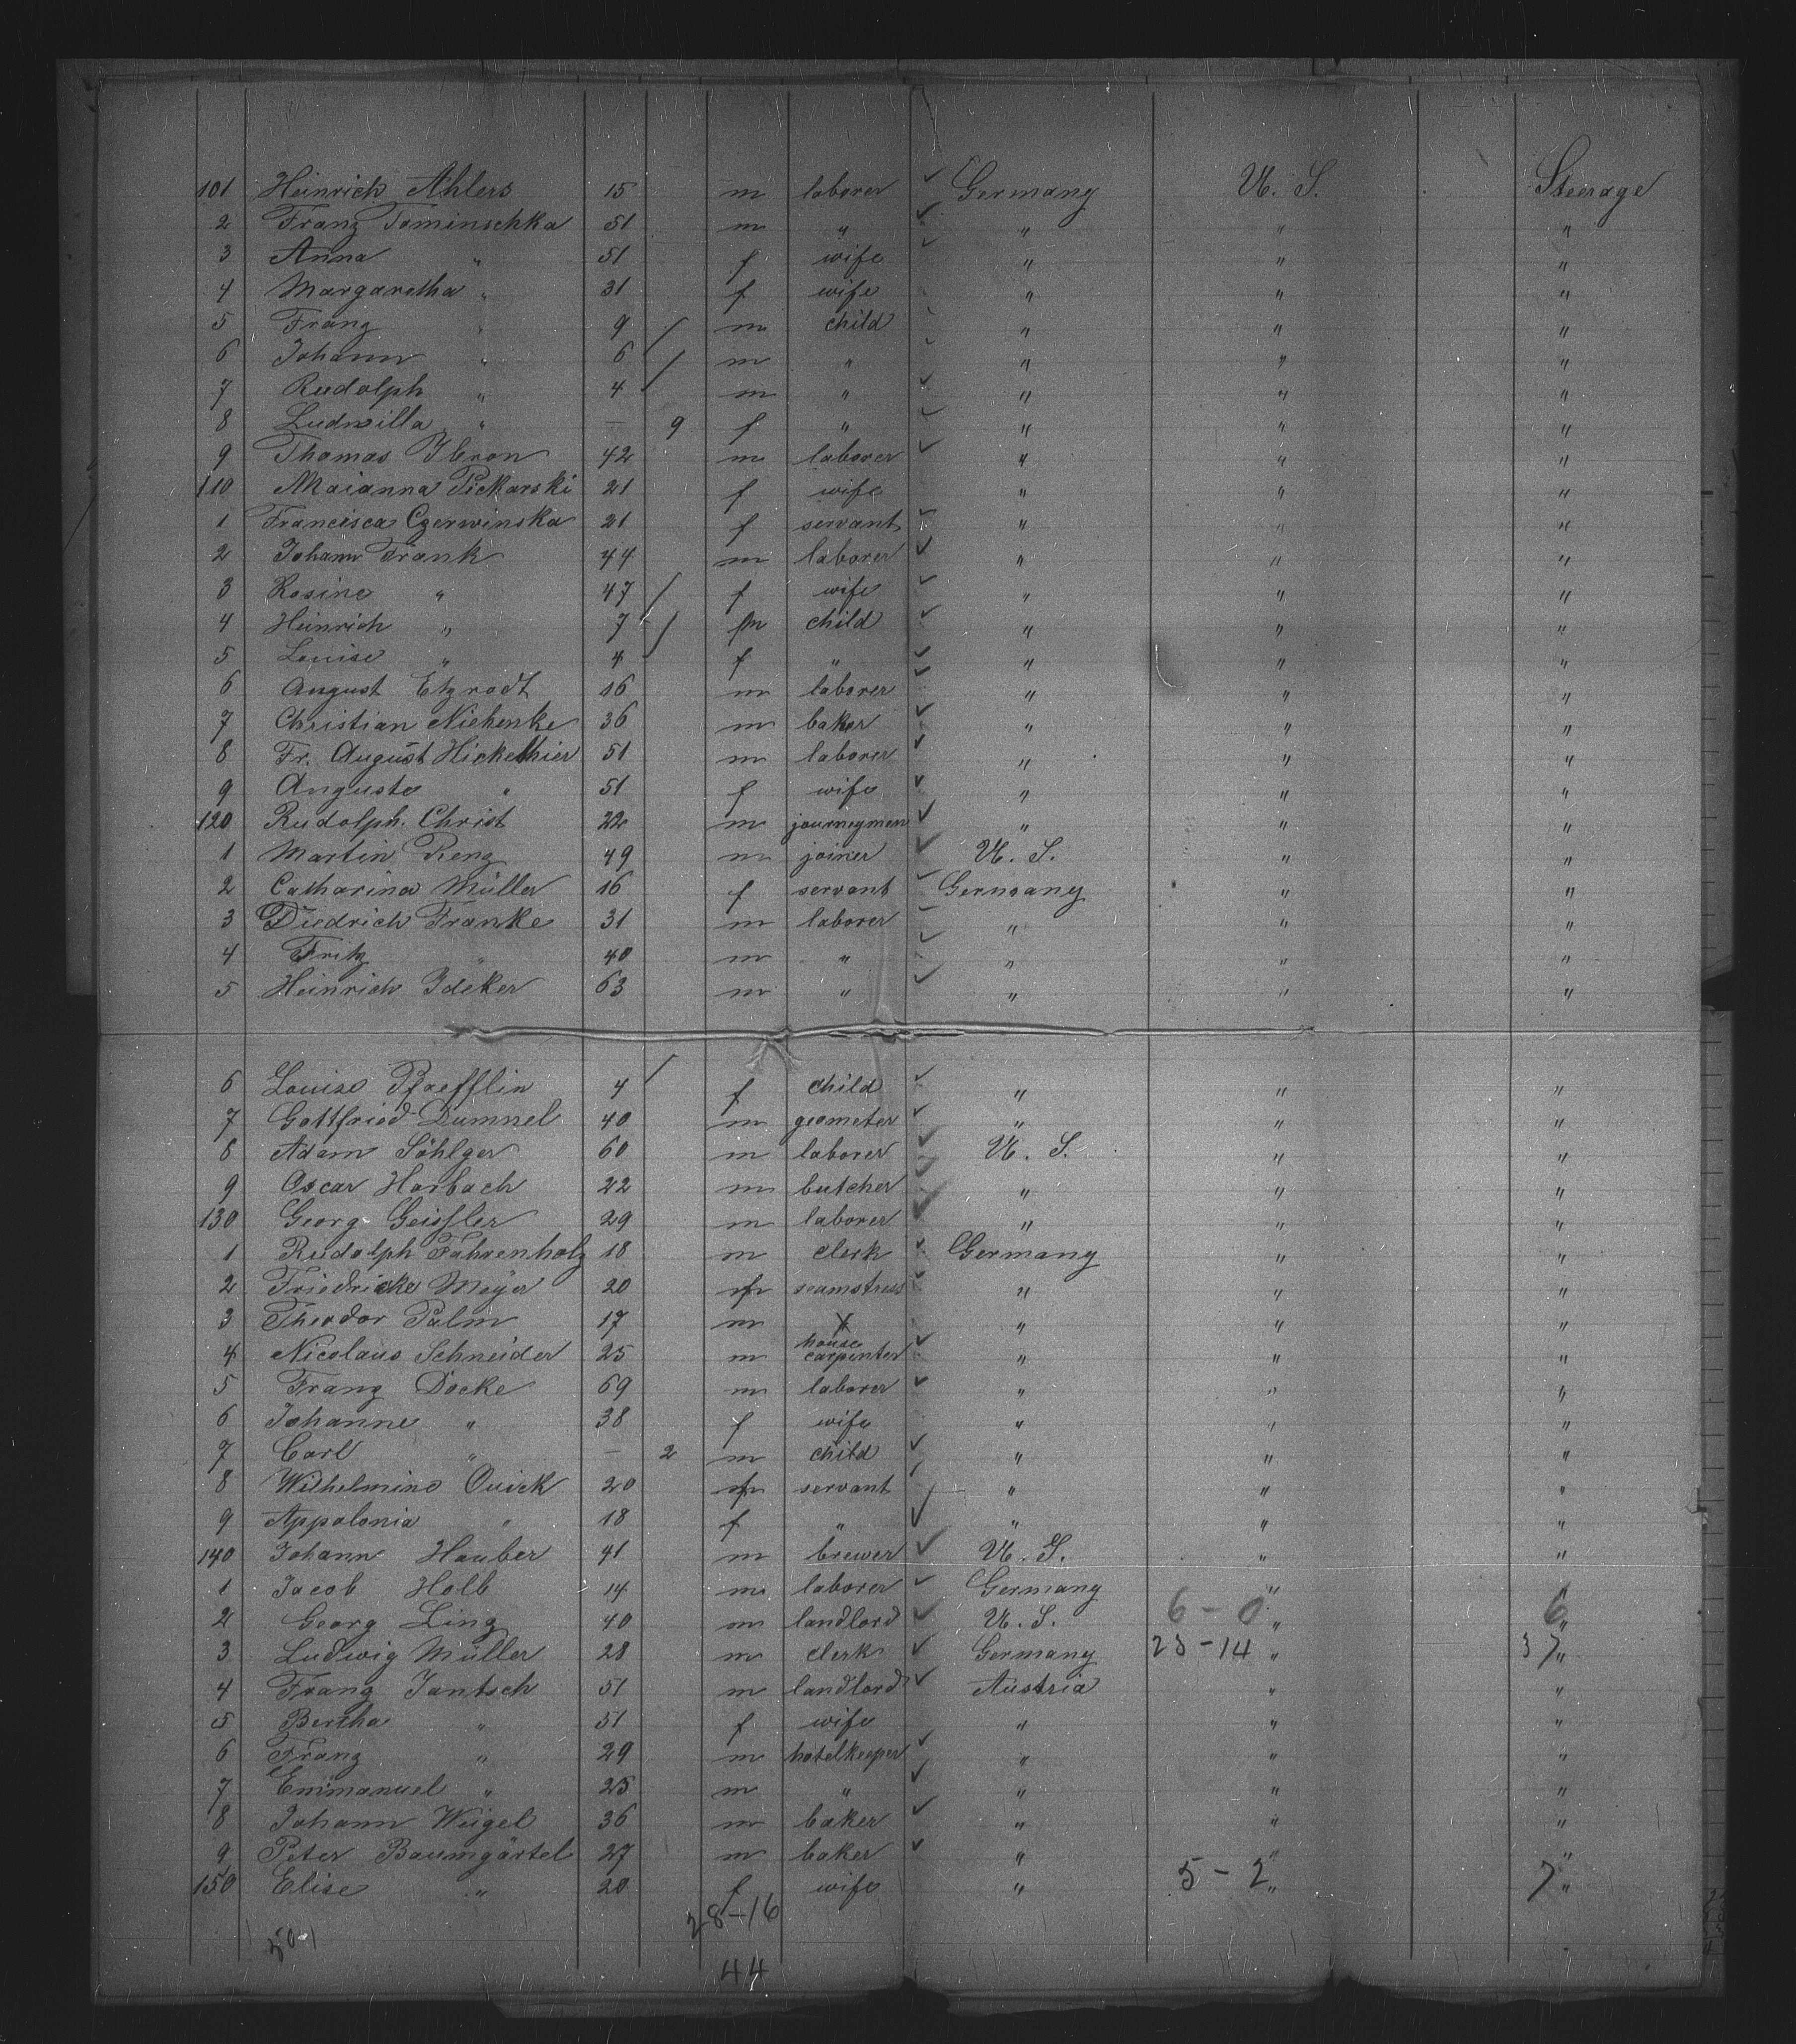 101 Heinrich Ahlers 15 m laborer ✓ Germany U. S. Steerage
2 Franz Tominschka 51 m " ✓ " " "
3 Anna " 51 f wife ✓ " " "
4 Margaretha " 31 f wife " " "
5 Franz " 9 / m child " " "
6 Johann " 6 / m " " " "
7 Rudolph " 4 m " ✓ " " "
8 Ludmilla " — 9 f " ✓ " " "
9 Thomas Ibron 42 m laborer ✓ " " "
110 Maianna Pickarski 21 f wife " " "
1 Francisca Czerwinska 21 f servant ✓ " " "
2 Johann Frank 44 m laborer ✓ " " "
3 Rosine " 47 / f wife ✓ " " "
4 Heinrich " 7 / m child ✓ " " "
5 Louise " 4 f " ✓ " " "
6 August Etzrodt 16 m laborer ✓ " " "
7 Christian Niehenke 36 m baker ✓ " " "
8 Fr. August Hickethier 51 m laborer ✓ " " "
9 Auguste " 51 f wife ✓ " " "
120 Rudolph Christ 22 m journeyman ✓ " " "
1 Martin Renz 49 m joiner ✓ U. S. " "
2 Catharina Müller 16 f servant ✓ Germany " "
3 Diedrich Franke 31 m laborer ✓ " " "
4 Fritz " 40 m " ✓ " " "
5 Heinrich Ideker 63 m " ✓ " " "
6 Louise Pfaefflin 4 / f child ✓ " " "
7 Gottfried Dummel 40 m geometer ✓ " " "
8 Adam Söhlger 60 m laborer ✓ U. S. " "
9 Oscar Harbach 22 m butcher ✓ " " "
130 Georg Geissler 29 m laborer ✓ " " "
1 Rudolph Fahrenholz 18 m clerk ✓ Germany " "
2 Friedricke Meyer 20 f seamstress ✓ " " "
3 Theodor Palm 17 m X " " "
4 Nicolaus Schneider 25 m house carpenter ✓ " " "
5 Franz Docke 69 m laborer ✓ " " "
6 Johanne " 38 f wife " " "
7 Carl " — 2 m child ✓ " " "
8 Wilhelmine Quick 20 f servant ✓ " " "
9 Appalonia " 18 f " ✓ " " "
140 Johann Hauber 41 m brewer ✓ U. S. " "
1 Jacob Holb 14 m laborer ✓ Germany " "
2 Georg Ling 40 m landlord ✓ U. S. 6 - 0 " 6 "
3 Ludwig Müller 28 m clerk ✓ Germany 23 - 14 " 37 "
4 Franz Jantsch 51 m landlord ✓ Austria " "
5 Bertha " 51 f wife " " "
6 Franz " 29 m hotelkeeper ✓ " " "
7 Emmanuel " 25 m " ✓ " " "
8 Johann Weigel 36 m baker ✓ " " "
9 Peter Baumgärtel 27 m baker ✓ " " "
150 Elise " 20 f wife " 5 - 2 " 7 "
28-16
50-1
44